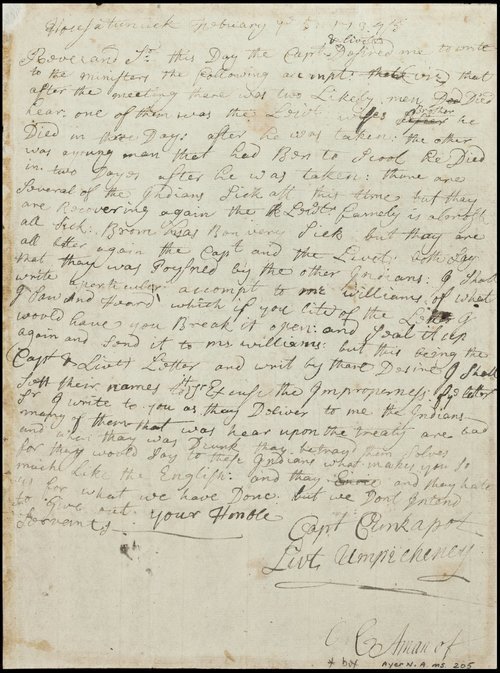 February
& Livit
Reverend Sr this Day the Capt Desired me to write
to the ministers the following acompt that
after the meeting there was two Likely men Died
hear: one of them was the Leivt Brother he
Died in three Days: after he was taken: the other
was a young man that had Ben to Scool he Died
in two Dayes after he was taken: there are
Several of the Indians Sick att this time but thay
are Recovering again the Leivts famely is almost
all Sick: Brom was Ben very Sick but thay are
all better again the Capt and the Livit: both Say
that thay was Poysned by the other Indians: I Shall
write a perticuler accompt to mr williams of what
I Saw and Heard which if you lite of the Letter I
would have you Break it open: and Seal it up
again and Send it to mr williams: but this being the
Capt & Livt Letter and writ by thare Desire I Shall
Sett their names to it Excuse the Improperness: of letter
Sr I write to you as they Deliver to me the Indians
many of them that was hear upon the treaty are bad
and when thay was Drunk thay betrayd them Selves
for they would Say to these Indians what makes you So
much Like the English: and thay and thay hate
us for what we have Done but we Dont Intend
to Give out. your Humble
Servants
Capt Cunkapot
Livt Umpicheney
Aman of
Ayer N. A. ms. 205